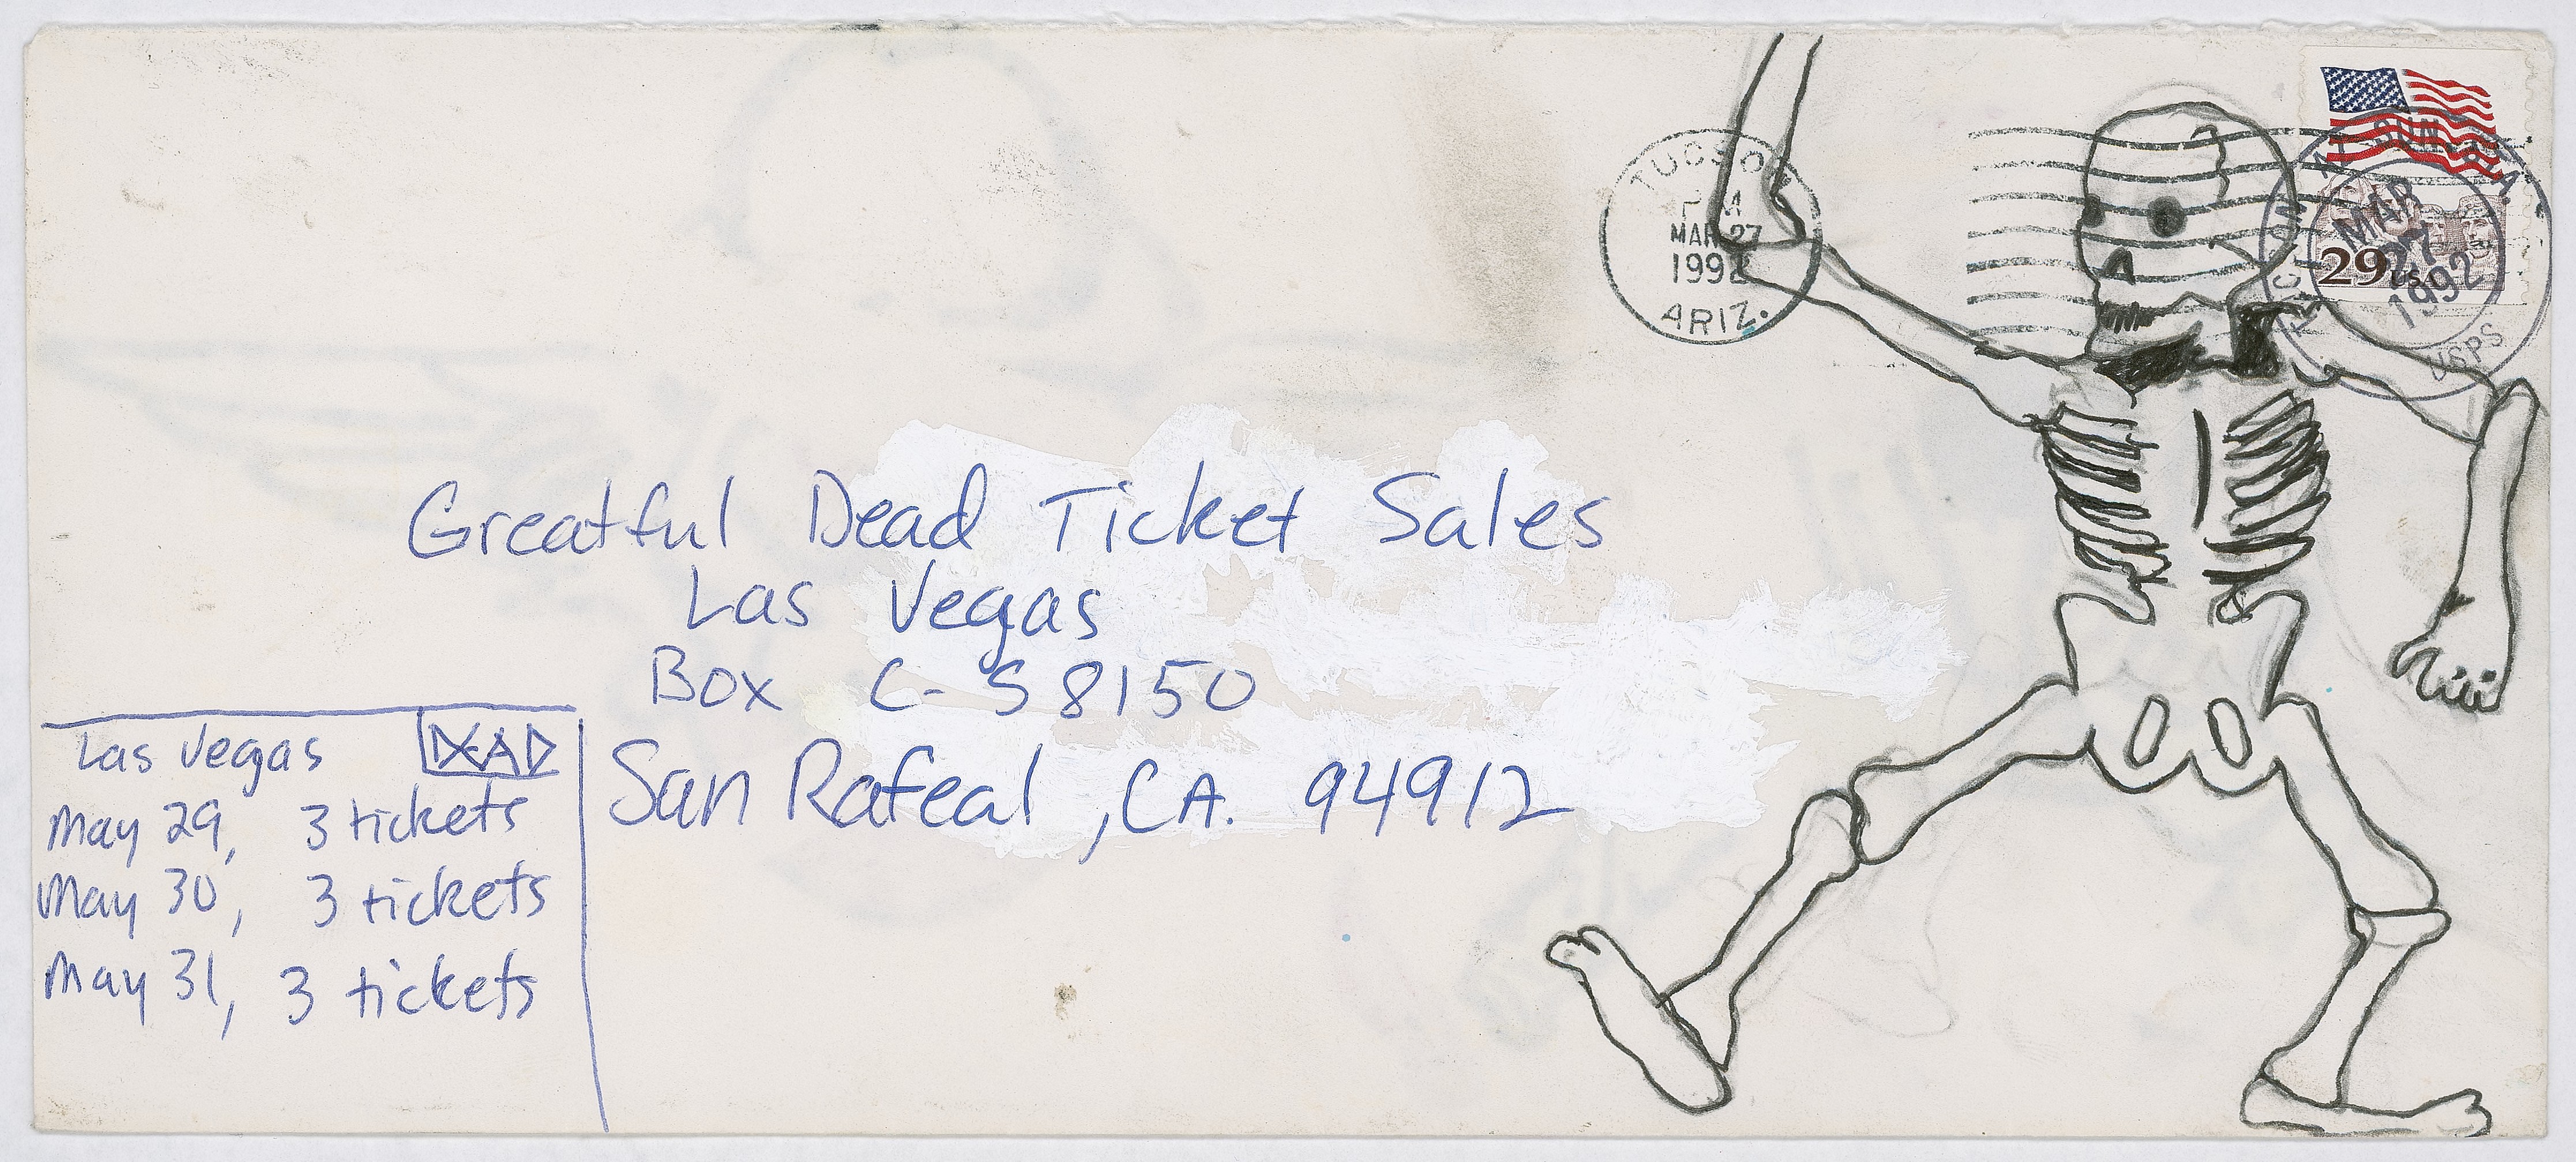 TUCSON
PM
MAR 27
1992
ARIZ.
MAR
27
1992
USPS
29 USA
Greatful Dead Ticket Sales
Las Vegas
Box C-S 8150
San Rafeal, CA. 94912
Las Vegas DEAD
May 29, 3 tickets
May 30, 3 tickets
May 31, 3 tickets